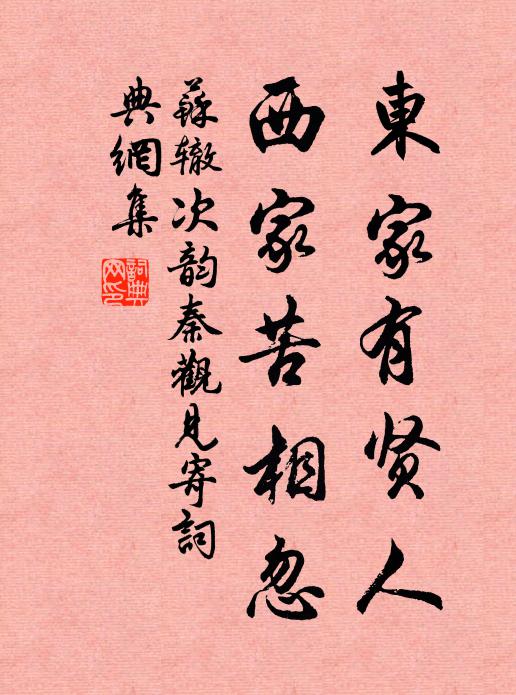 東家有贤人
西家苦相忽
蘇辙次韵秦觀見寄詞
典網集
詞典
网印